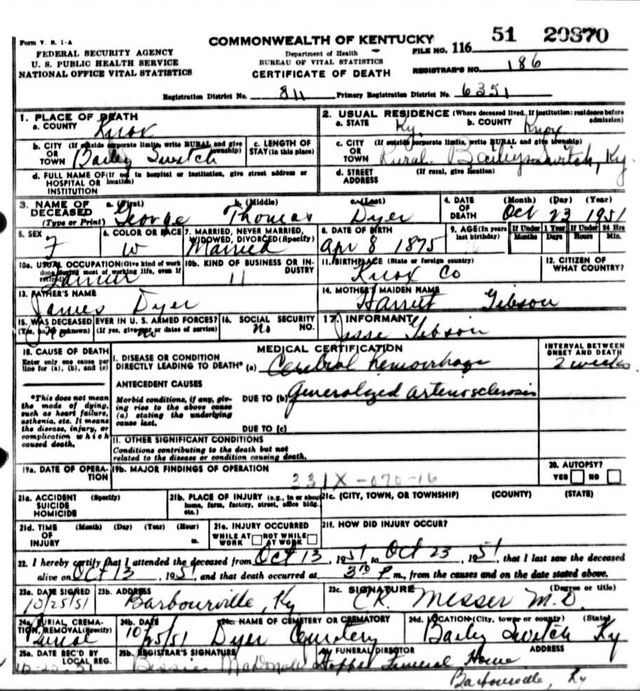 Form V. S. 1-A
COMMONWEALTH OF KENTUCKY
FEDERAL SECURITY AGENCY
U. S. PUBLIC HEALTH SERVICE
NATIONAL OFFICE VITAL STATISTICS
Department of Health
BUREAU OF VITAL STATISTICS
CERTIFICATE OF DEATH
FILE NO. 116 51 20870
REGISTRAR'S NO. 186
Registration District No. 811 Primary Registration District No. 6351
1. PLACE OF DEATH
a. COUNTY Knox
2. USUAL RESIDENCE (Where deceased lived. If institution: residence before admission)
a. STATE Ky. b. COUNTY Knox
b. CITY (If outside corporate limits, write RURAL and give township) OR TOWN Bailey Switch
c. LENGTH OF STAY (in this place)
c. CITY (If outside corporate limits, write RURAL and give township) OR TOWN Rural. Bailey Switch, Ky.
d. FULL NAME OF (If not in hospital or institution, give street address or location) HOSPITAL OR INSTITUTION
d. STREET ADDRESS (If rural, give location)
3. NAME OF DECEASED (Type or Print) a. (First) George b. (Middle) Thomas c. (Last) Dyer
4. DATE OF DEATH (Month) (Day) (Year) Oct 23 1951
5. SEX 7
6. COLOR OR RACE W
7. MARRIED, NEVER MARRIED, WIDOWED, DIVORCED (Specify) Married
8. DATE OF BIRTH Apr 8 1875
9. AGE (In years last birthday) If Under 1 Year Months Days If Under 24 Hrs Hours Min.
10a. USUAL OCCUPATION (Give kind of work done during most of working life, even if retired) Farmer
10b. KIND OF BUSINESS OR INDUSTRY 11
11. BIRTHPLACE (State or foreign country) Knox Co
12. CITIZEN OF WHAT COUNTRY?
13. FATHER'S NAME James Dyer
14. MOTHER'S MAIDEN NAME Harriet Gibson
15. WAS DECEASED EVER IN U. S. ARMED FORCES? (Yes, no, or unknown) (If yes, give war or dates of service) No
16. SOCIAL SECURITY NO. No
17. INFORMANT Jesse Gibson
18. CAUSE OF DEATH
Enter only one cause per line for (a), (b), and (c)
MEDICAL CERTIFICATION
INTERVAL BETWEEN ONSET AND DEATH
I. DISEASE OR CONDITION DIRECTLY LEADING TO DEATH* (a) Cerebral hemorrhage 2 weeks
*This does not mean the mode of dying, such as heart failure, asthenia, etc. It means the disease, injury, or complication which caused death.
ANTECEDENT CAUSES
Morbid conditions, if any, giving rise to the above cause (a) stating the underlying cause last.
DUE TO (b) Generalized arteriosclerosis
DUE TO (c)
II. OTHER SIGNIFICANT CONDITIONS
Conditions contributing to the death but not related to the disease or condition causing death.
19a. DATE OF OPERATION
19b. MAJOR FINDINGS OF OPERATION
331X-070-16
20. AUTOPSY? YES NO
21a. ACCIDENT SUICIDE HOMICIDE (Specify)
21b. PLACE OF INJURY (e.g., in or about home, farm, factory, street, office bldg., etc.)
21c. (CITY, TOWN, OR TOWNSHIP) (COUNTY) (STATE)
21d. TIME OF INJURY (Month) (Day) (Year) (Hour) m.
21e. INJURY OCCURRED WHILE AT WORK NOT WHILE AT WORK
21f. HOW DID INJURY OCCUR?
22. I hereby certify that I attended the deceased from Oct 13, 1951 to Oct 23, 1951, that I last saw the deceased
alive on Oct 13, 1951, and that death occurred at P m., from the causes and on the date stated above.
23a. DATE SIGNED 10/25/51
23b. ADDRESS Barbourville, Ky
23c. SIGNATURE (Degree or title) C.R. Messer M.D.
24a. BURIAL, CREMATION, REMOVAL (Specify) Burial
24b. DATE 10/25/51
24c. NAME OF CEMETERY OR CREMATORY Dyer Cemetery
24d. LOCATION (City, town, or county) (State) Bailey Switch Ky
25a. DATE REC'D BY LOCAL REG.
25b. REGISTRAR'S SIGNATURE Bessie MacDonald
FUNERAL DIRECTOR Hopper Funeral Home
ADDRESS Barbourville, Ky